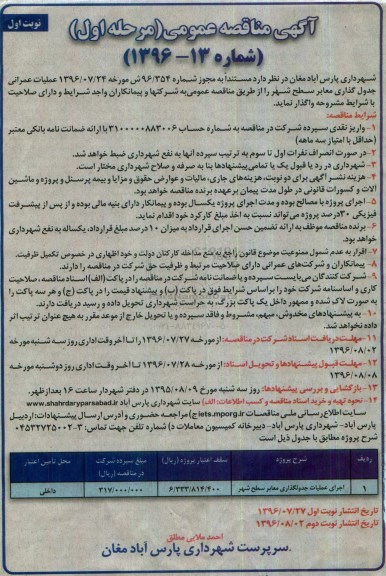 نوبت اول
آگهی مناقصه عمومی (مرحله اول)
(شماره ۱۳- ۱۳۹۶)
شهرداری پارس آباد مغان در نظر دارد مستندا به مجوز شماره ۹۶/۳۵۴ ش مورخه ۱۳۹۶/۰۷/۲۴ عملیات عمرانی
جدول گذاری معابر سطح شهر را از طریق مناقصه عمومی به شرکتها و پیمانکاران واجد شرایط و دارای صلاحیت
با شرایط مشروحه واگذار نماید.
شرایط مناقصه:
۱- واریز نقدی سپرده شرکت در مناقصه به شماره حساب ۳۱۰۰۰۰۰۸۸۳۰۰۶ یا ارائه ضمانت نامه بانکی معتبر
(حداقل با امتیاز سه ماهه)
۲- در صورت انصراف نفرات اول تا سوم به ترتیب سپرده آنها به نفع شهرداری ضبط خواهد شد.
۳- شهرداری در رد یا قبول یک یا تمامی پیشنهادها بنا به صرفه و صلاح شهرداری مختار است.
۴- هزینه نشر آگهی برای دو نوبت، هزینه های جاری، مالیات و عوارض حقوق و مزایا و بیمه پرسنل و پروژه و ماشین
آلات و کسورات قانونی در طول مدت پیمان برعهده برنده مناقصه خواهد بود.
۵- اجرای پروژه با مصالح بوده و مدت اجرای پروژه یکسال بوده و پیمانکار دارای بنیه مالی بوده و از پس از پیشرفت
فیزیکی ۳۰ درصد پروژه می تواند نسبت به اخذ مبلغ کارکرد خود اقدام نماید.
۶- برنده مناقصه موظف به ارائه تضمین حسن اجرای قرارداد به میزان ۱۰ درصد مبلغ قرارداد، یکساله به نفع شهرداری
خواهد بود.
۷- اقرار به عدم شمول ممنوعیت موضوع قانون راجع به منع مداخله کارکنان دولت و خود اظهاری در خصوص تکمیل ظرفیت.
۸- پیمانکاران و شرکت های عمرانی دارای صلاحیت مرتبط و ظرفیت حق شرکت در مناقصه را دارند.
۹- شرکت کنندگان می بایست سپرده و یا ضمانت نامه شرکت در مناقصه را در پاکت (الف) اسناد مناقصه، صلاحیت
کاری و اساسنامه شرکت خود را بر اساس شرایط فوق در پاکت (ب) و پیشنهاد قیمت را در پاکت (ج) و هر سه پاکت را
به صورت لاک شده و ممهور داخل یک پاکت بزرگ، به حراست شهرداری تحویل داده و رسید دریافت دارند.
۱۰- به پیشنهادهای مخدوش، مبهم، مشروط و فاقد سپرده و یا تحویل خارج از موعد مقرر به هیچ عنوان ترتیب اثر
داده نخواهد شد.
۱۱- مهلت دریافت اسناد شرکت در مناقصه: از مورخه ۱۳۹۶/۰۷/۲۷ تا آخر وقت اداری روز سه شنبه مورخه
۱۳۹۶/۰۸/۰۲
۱۲- مهلت قبول پیشنهادها و تحویل اسناد: از مورخه ۱۳۹۶/۰۷/۲۸ تا آخر وقت اداری روز دوشنبه مورخه
۱۳۹۶/۰۸/۰۸
۱۳- بازگشایی و بررسی پیشنهادها: روز سه شنبه مورخ ۱۳۹۵/۰۸/۰۹ در دفتر شهردار ساعت ۱۶ بعدازظهر.
۱۴- نحوه تهیه و خرید اسناد مناقصه و کسب اطلاعات: الف) سایت شهرداری پارس آباد www.shahrdaryparsabad.ir
سایت اطلاع رسانی ملی مناقصات iets.mporg.ir ج) مراجعه حضوری و آدرس ارسال پیشنهادات: اردبیل
پارس آباد- شهرداری پارس آباد- دبیرخانه کمیسیون معاملات د) شماره تلفن جهت تماس: ۳-۰۴۵۳۲۷۲۵۰۰۲
شرح پروژه مطابق با جدول ذیل است
ردیف شرح پروژه سقف اعتبار پروژه (ریال) مبلغ سپرده شرکت در مناقصه (ریال) محل تامین اعتبار
۱ اجرای عملیات جدولگذاری معابر سطح شهر ۶/۳۳۳/۸۱۴/۴۰۰ ۳۱۷/۰۰۰/۰۰۰ داخلی
تاریخ انتشار نوبت اول ۱۳۹۶/۰۷/۲۷
تاریخ انتشار نوبت دوم ۱۳۹۶/۰۸/۰۲
احمد ملایی مطلق
سرپرست شهرداری پارس آباد مغان